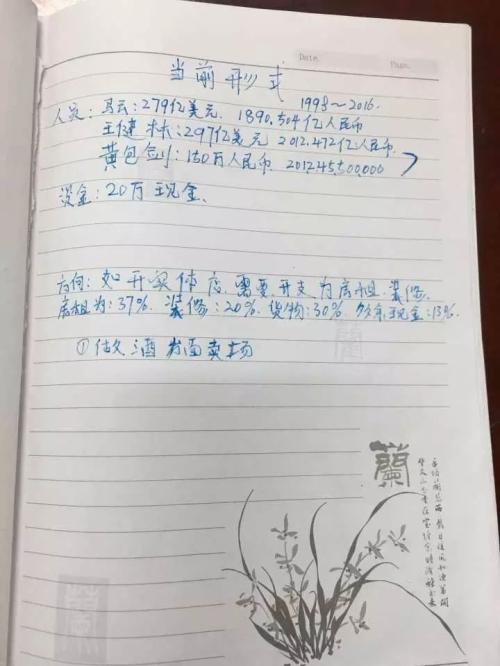 Date.
Page.
当前形式
1998～2016.
人员：马云：279亿美元 1890.504亿人民币
王健林：297亿美元 2012.472亿人民币
黄包剑：150万人民币 201245500000
资金：20万现金、
方向：如开实体店，需要开支为房租、装修、
房租为：37%. 装修：20% 货物：30% 现金：13%.
①做 酒 方面卖场
蘭